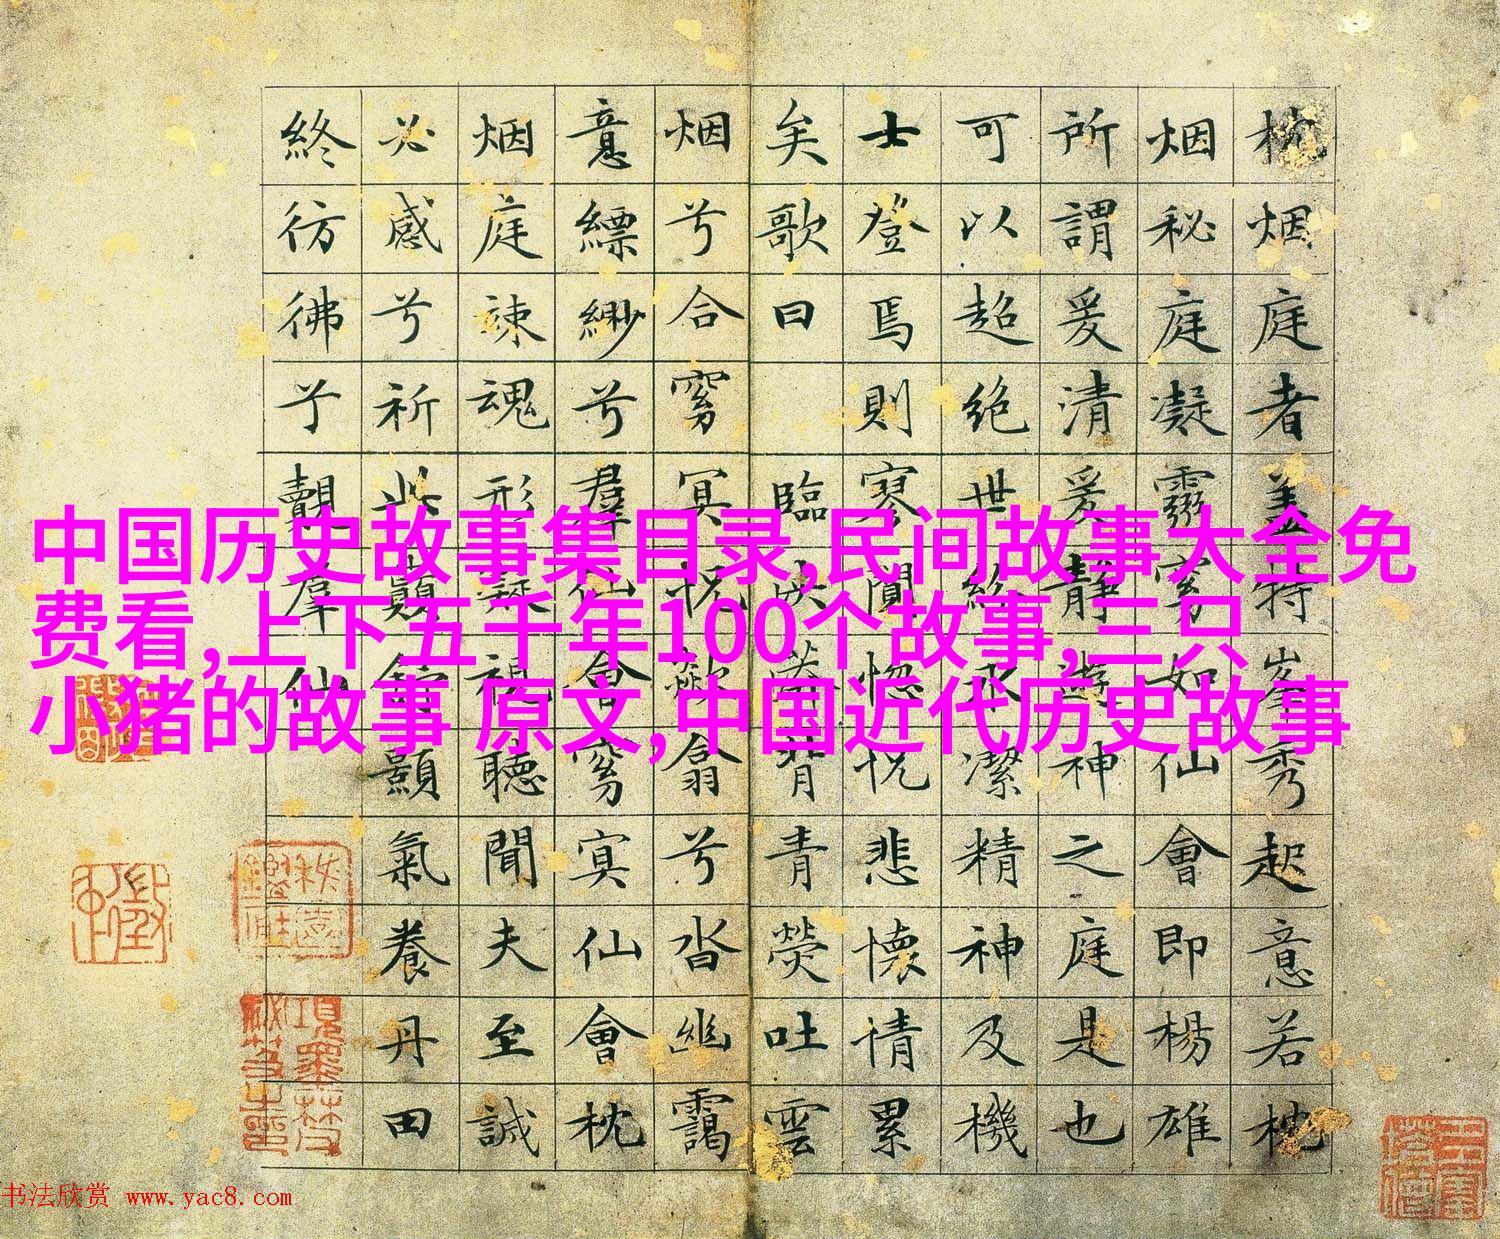 枕烟庭者盖特峯秀起意若枕
烟秘庭凝霛窅如仙會即楊雄
所謂爰清爰靜遊神之庭是也
可以超絶世紛永潔精神及機
士登焉則寥闃惚怳悲懷情累
矣歌曰 臨泱漭背青熒吐雲
烟兮合窅冥怳歘翕兮沓幽靄
意縹緲兮羣仙會窅冥仙會枕
烟庭竦魂形凝視聽聞夫至誠
必感兮祈此巔顥氣養丹田
終彷彿兮覯羣仙
中国历史故事集目录,民间故事大全免
费看,上下五千年100个故事,三只
小猪的故事 原文,中国近代历史故事
书法欣赏 www.yac8.com